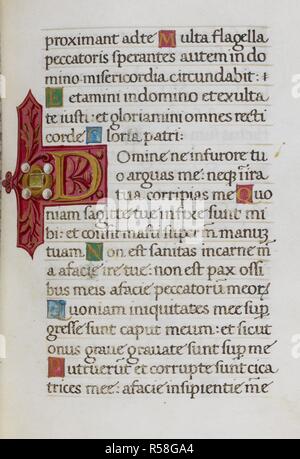 proximant ad te Multa flagella
peccatoris sperantes autem in do
mino misericordia circundabit:
Letamini in domino et exulta
te iusti: et gloriamini omnes recti
corde Gloria patri:
Domine ne in furore tu
o arguas me: neq; in ira
tua corripias me Quo
niam sagitte tue infixe sunt mi
bi: et confirmasti super me manuz
tuam Non est sanitas in carne m̄
a a facie ire tue: non est pax ossi
bus meis a facie peccatorū meoꝝ
Quoniam iniquitates mee sup
gresse sunt caput meum: et sicut
onus graue grauate sunt sup me
Putruerūt et corrupte sunt cica
trices mee: a facie insipientie m̄e
alamy
Image ID: R58GA4
www.alamy.com